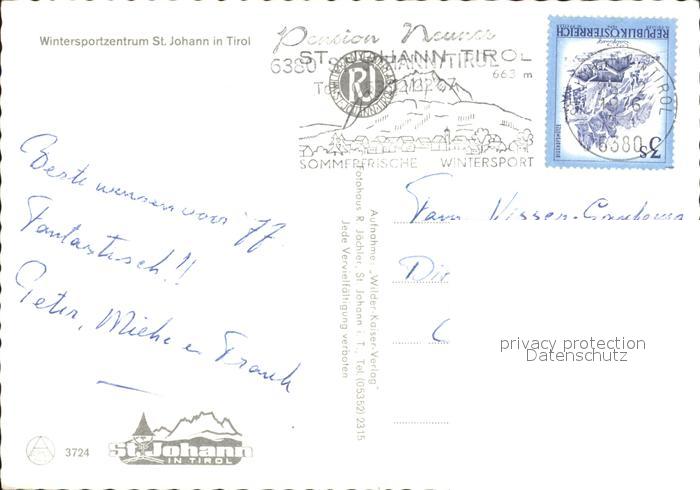 Wintersportzentrum St. Johann in Tirol
Pension
6380 ST. JOHANN TIROL
ST. JOHANN TIROL
663 m
SOMMERFRISCHE WINTERSPORT
REPUBLIK ÖSTERREICH
3S
TIROL
6380
Beste wensen voor '77
Fantastisch!!
Peter, Mieke en Frank
Fam. Vissen-
Dir
C
privacy protection
Datenschutz
Aufnahme: „Wilder-Kaiser-Verlag"
Fotohaus R. Jöchler, St. Johann i. T., Tel. (05352) 2315
Jede Vervielfältigung verboten
3724
St. Johann
IN TIROL